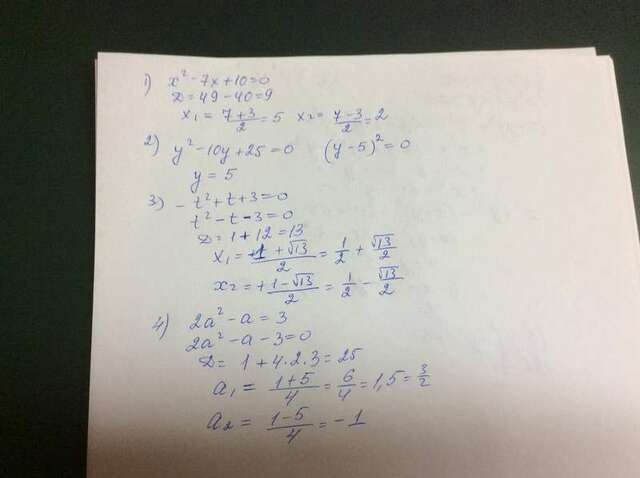 1) x² - 7x + 10 = 0
D = 49 - 40 = 9
x₁ = (7+3)/2 = 5 x₂ = (7-3)/2 = 2
2) y² - 10y + 25 = 0 (y - 5)² = 0
y = 5
3) -t² + t + 3 = 0
t² - t - 3 = 0
D = 1 + 12 = 13
x₁ = +(1 + √13)/2 = 1/2 + √13/2
x₂ = +(1 - √13)/2 = 1/2 - √13/2
4) 2a² - a = 3
2a² - a - 3 = 0
D = 1 + 4·2·3 = 25
a₁ = (1+5)/4 = 6/4 = 1,5 = 3/2
a₂ = (1-5)/4 = -1